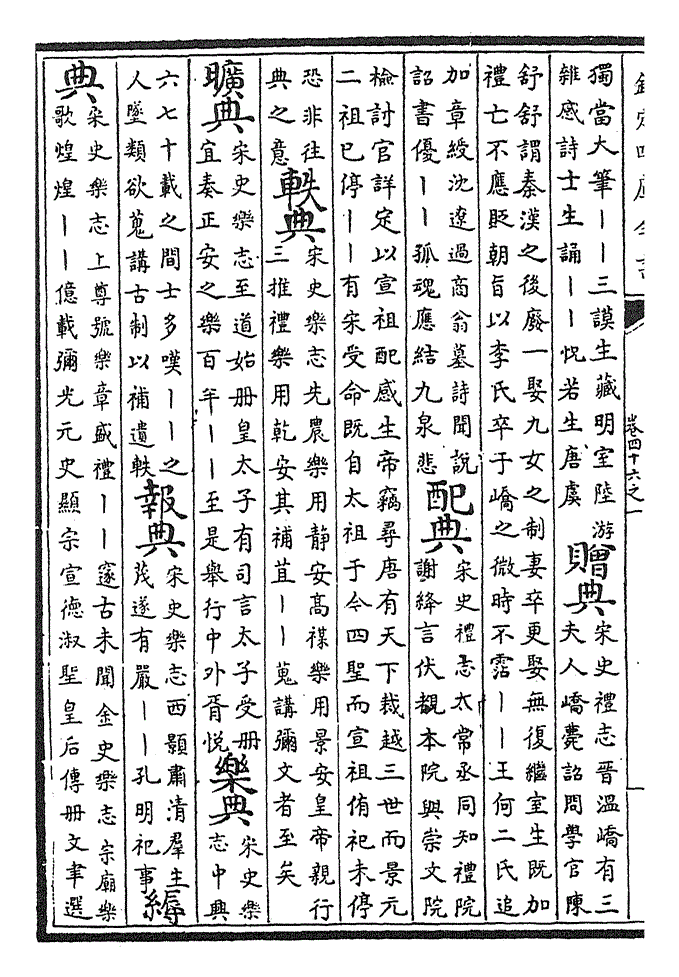 欽定四庫全書
卷四十六之一
獨當大筆丨丨三謨生藏明室陸游
雜感詩士生誦丨丨恍若生唐虞
贈典
宋史禮志晉溫嶠有三
夫人嶠薨詔問學官陳
舒舒謂秦漢之後廢一娶九女之制妻卒更娶無復繼室生既加
禮亡不應貶朝旨以李氏卒于嶠之微時不霑丨丨王何二氏追
加章綬沈遼過商翁墓詩聞說
詔書優丨丨孤魂應結九泉悲
配典
宋史禮志太常丞同知禮院
謝絳言伏覩本院與崇文院
檢討官詳定以宣祖配感生帝竊尋唐有天下裁越三世而景元
二祖已停丨丨有宋受命既自太祖于今四聖而宣祖侑祀未停
恐非往
典之意
軼典
宋史樂志先農樂用靜安高禖樂用景安皇帝親行
三推禮樂用乾安其補苴丨丨蒐講彌文者至矣
曠典
宋史樂志至道始冊皇太子有司言太子受冊
宜奏正安之樂百年丨丨至是舉行中外胥悅
樂典
宋史樂
志中興
六七十載之間士多嘆丨丨之
人墜類欲蒐講古制以補遺軼
報典
宋史樂志西顥肅清羣生
茂遂有嚴丨丨孔明祀事
縟
典
宋史樂志上尊號樂章盛禮丨丨邃古未聞金史樂志宗廟樂
歌煌煌丨丨億載彌光元史顯宗宣德淑聖皇后傳冊文聿選